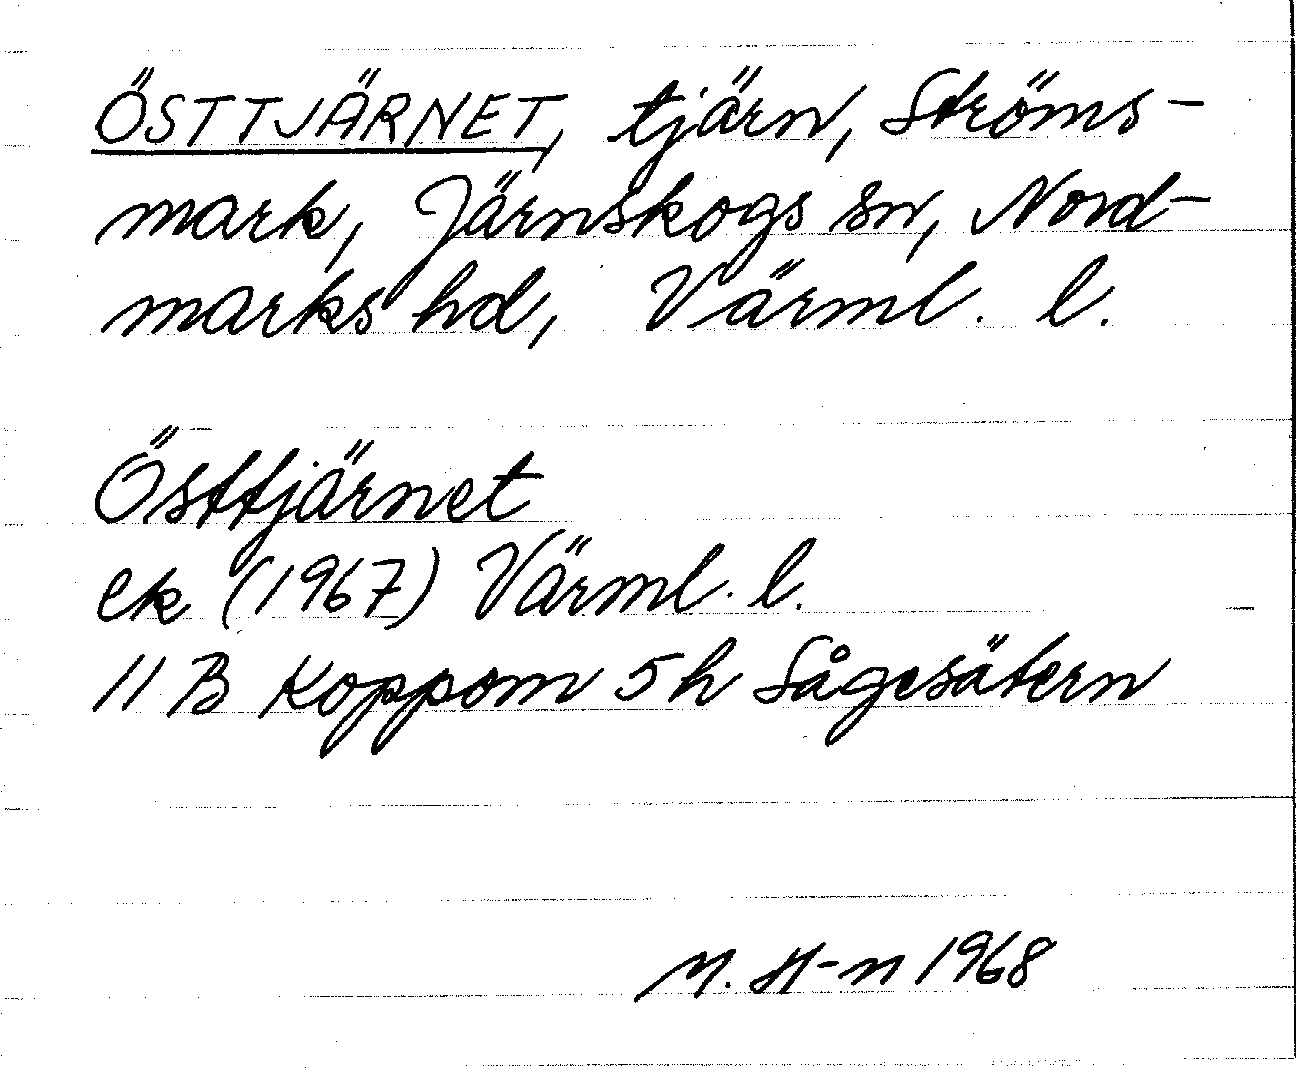 ÖSTTJÄRNET, tjärn, Ströms-
mark, Järnskogs sn, Nord-
marks hd, Värml. l.
Östtjärnet
ek (1967) Värml. l.
11 B Koppom 5 h Sågesätern
M. H-n 1968